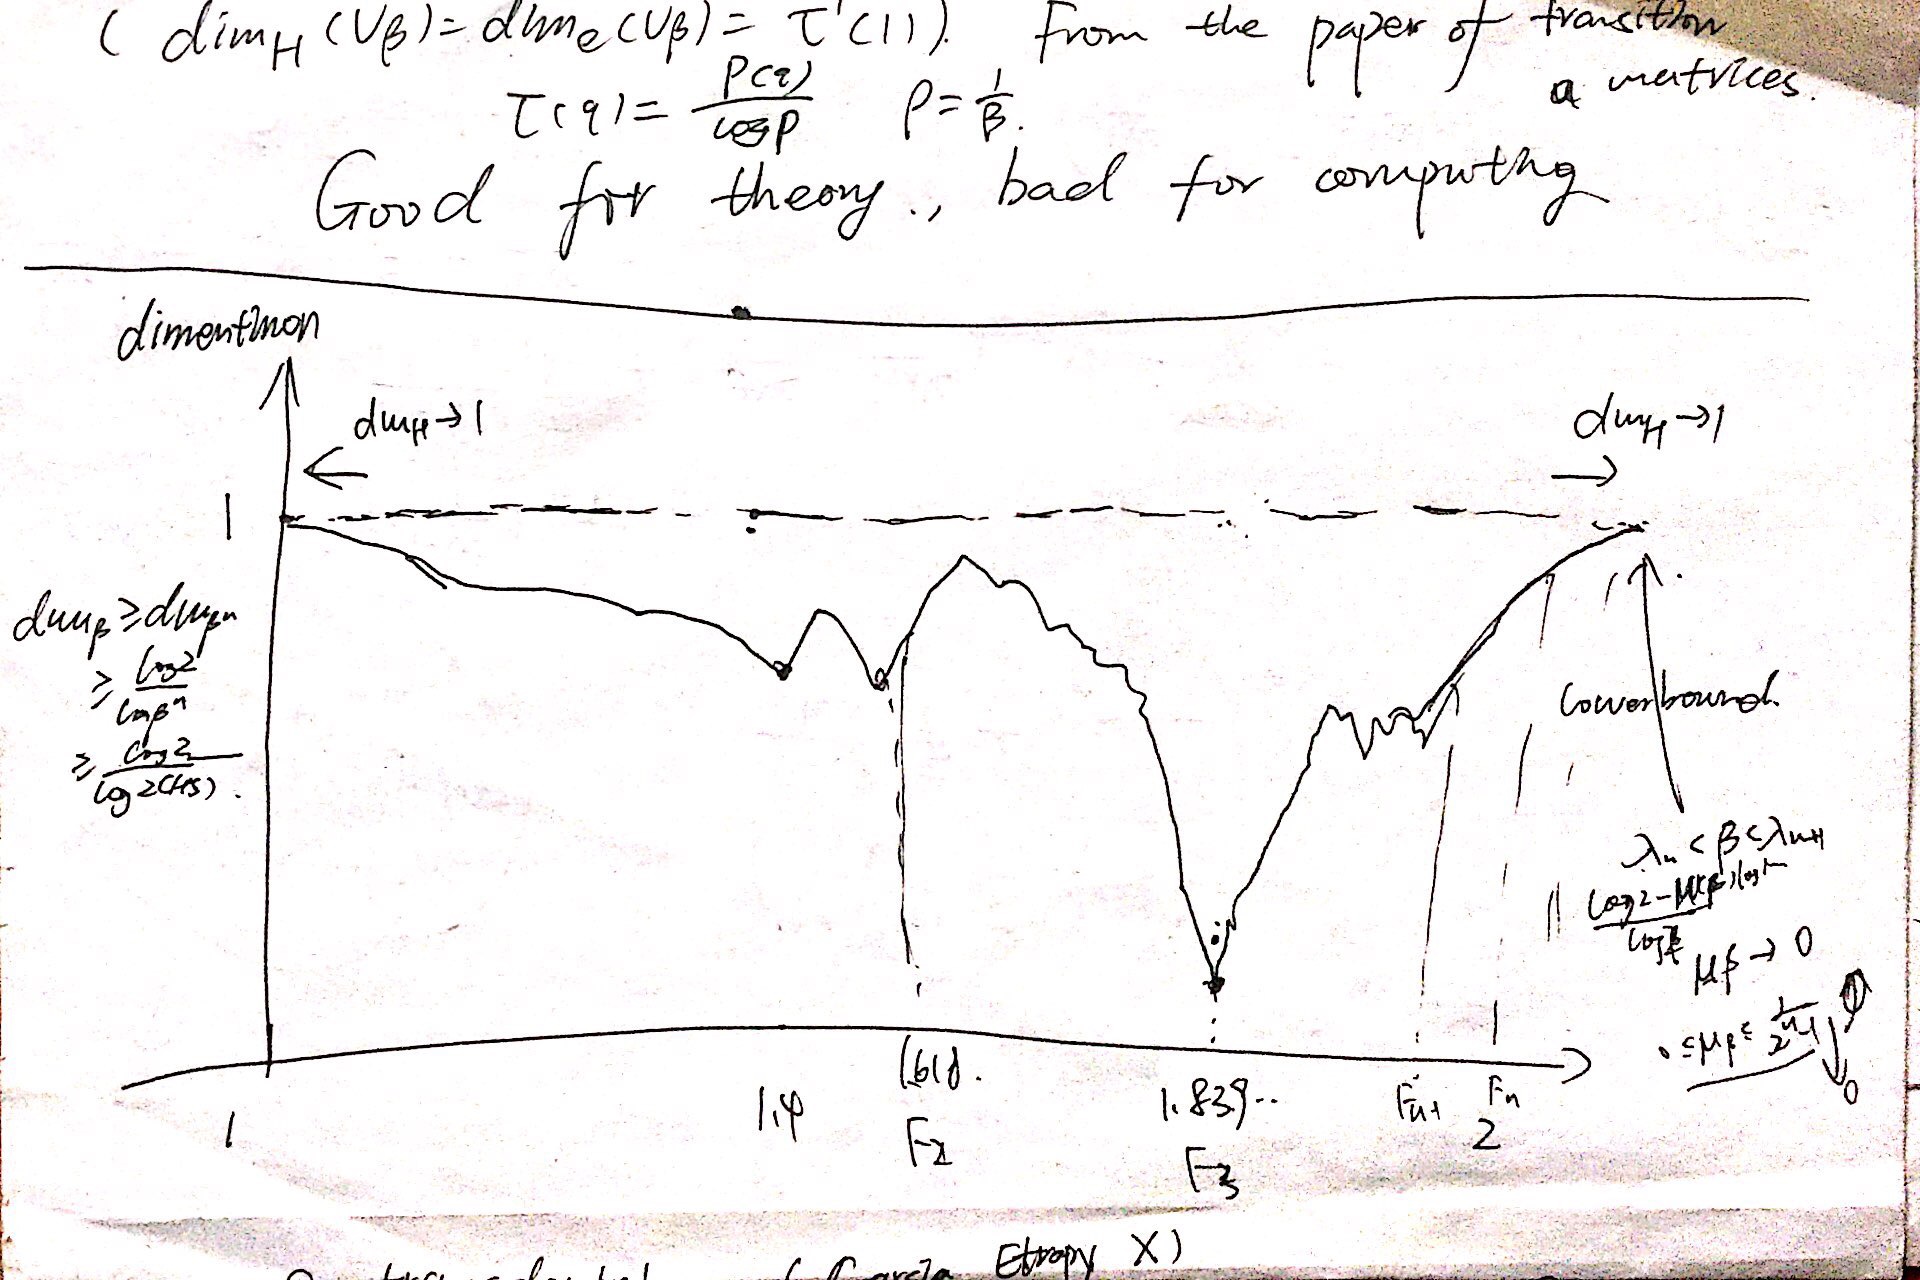 ( dim_H (ν_β) = dim_e (ν_β) = τ'(1) ). From the paper of transition
matrices.
τ(q) = P(q) / log ρ   ρ = 1/β.
Good for theory., bad for computing
dimention
dim_H → 1
dim_H → 1
1
dim_β ≥ dim_βⁿ
≥ log 2 / log βⁿ
≥ log 2 / log 2(1+s).
lowerbound.
λ_n < β < λ_n+1
log 2 - μ(β) log
μ_β → 0
0 ≤ μ_β ≤
0
1
1.4
1.618.
F_2
1.839...
F_3
F_n-1
F_n
2
Garcia Etropy X)